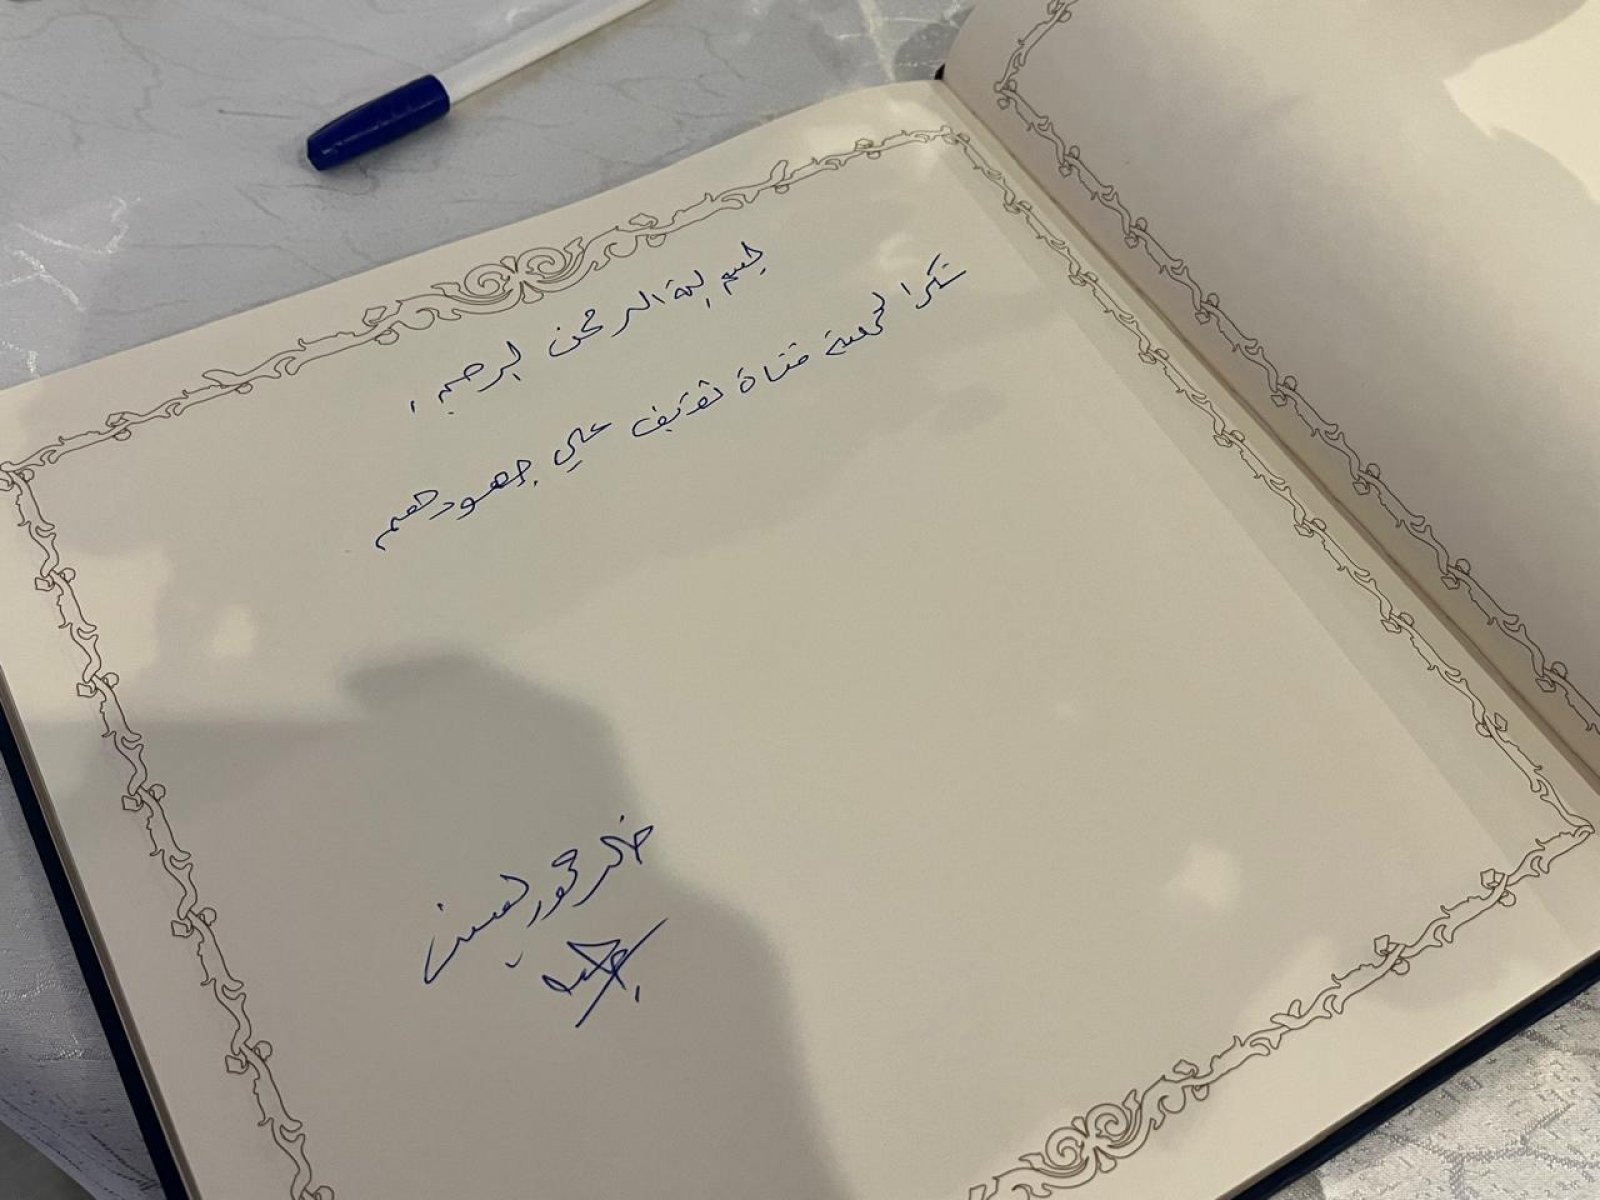 بسم الله الرحمن الرحيم ،
شكرا لجمعية فتاة ثقيف على جهودهم
خالد